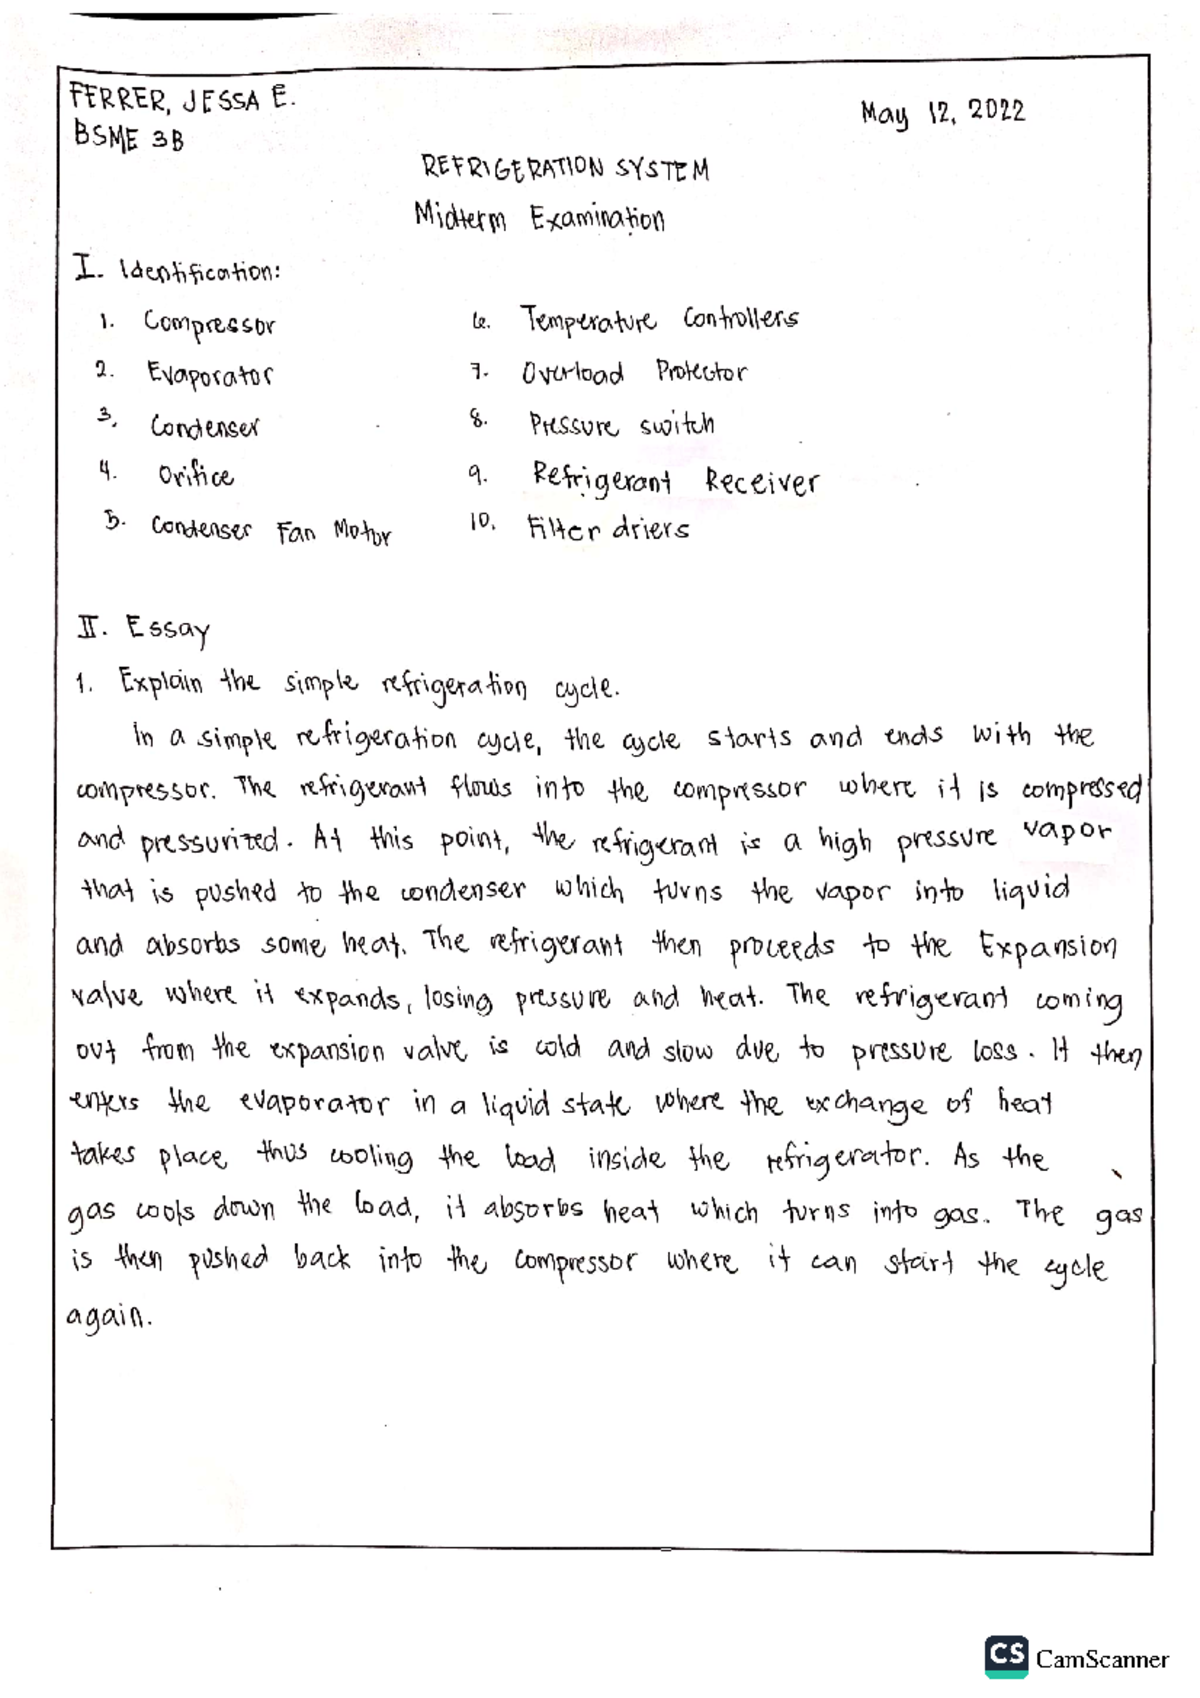 FERRER, JESSA E.
May 12, 2022
BSME 3B
REFRIGERATION SYSTEM
Midterm Examination
I. Identification:
1. Compressor
2. Evaporator
3. Condenser
4. Orifice
5. Condenser Fan Motor
6. Temperature Controllers
7. Overload Protector
8. Pressure switch
9. Refrigerant Receiver
10. Filter driers
II. Essay
1. Explain the simple refrigeration cycle.
In a simple refrigeration cycle, the cycle starts and ends with the
compressor. The refrigerant flows into the compressor where it is compressed
and pressurized. At this point, the refrigerant is a high pressure vapor
that is pushed to the condenser which turns the vapor into liquid
and absorbs some heat. The refrigerant then proceeds to the Expansion
valve where it expands, losing pressure and heat. The refrigerant coming
out from the expansion valve is cold and slow due to pressure loss. It then
enters the evaporator in a liquid state where the exchange of heat
takes place, thus cooling the load inside the refrigerator. As the
gas cools down the load, it absorbs heat which turns into gas. The gas
is then pushed back into the compressor where it can start the cycle
again.
CS CamScanner